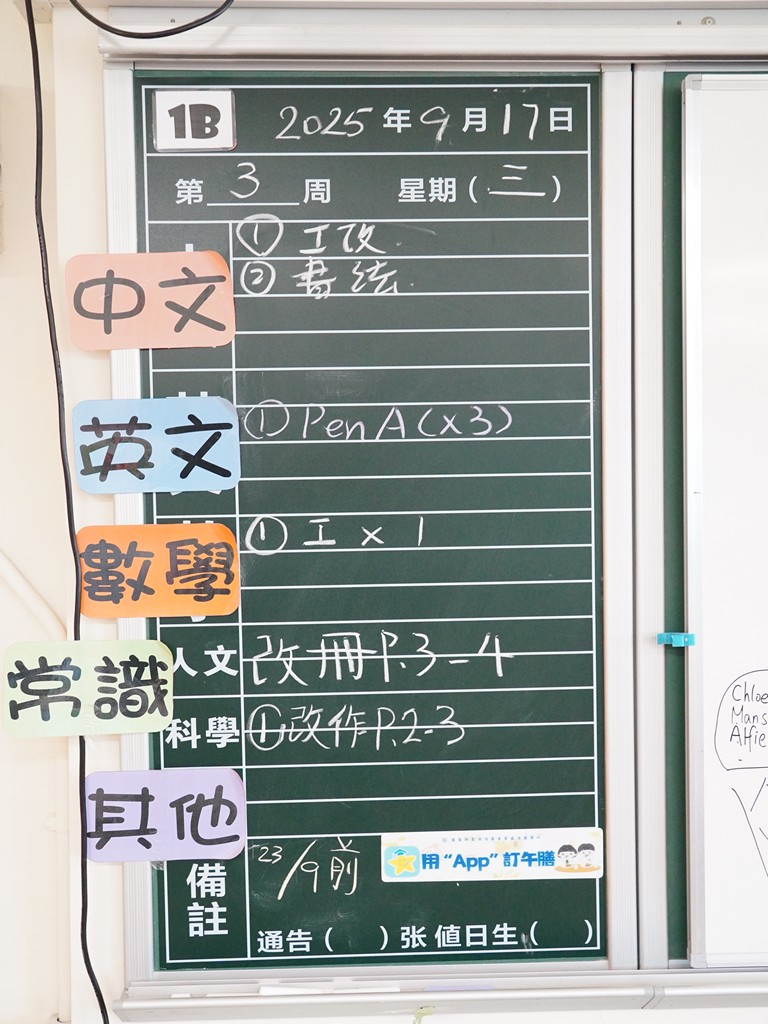 1B 2025年9月17日
第3周 星期(三)
中文
① 工改
② 書法
英文
① Pen A (x3)
數學
① 工 x 1
常識
人文 改冊 P.3-4
科學 ①改作 P.2-3
其他
備註
23/9前
用“App”訂午膳
通告( )张 值日生( )
Chloe
Mans
Alfie